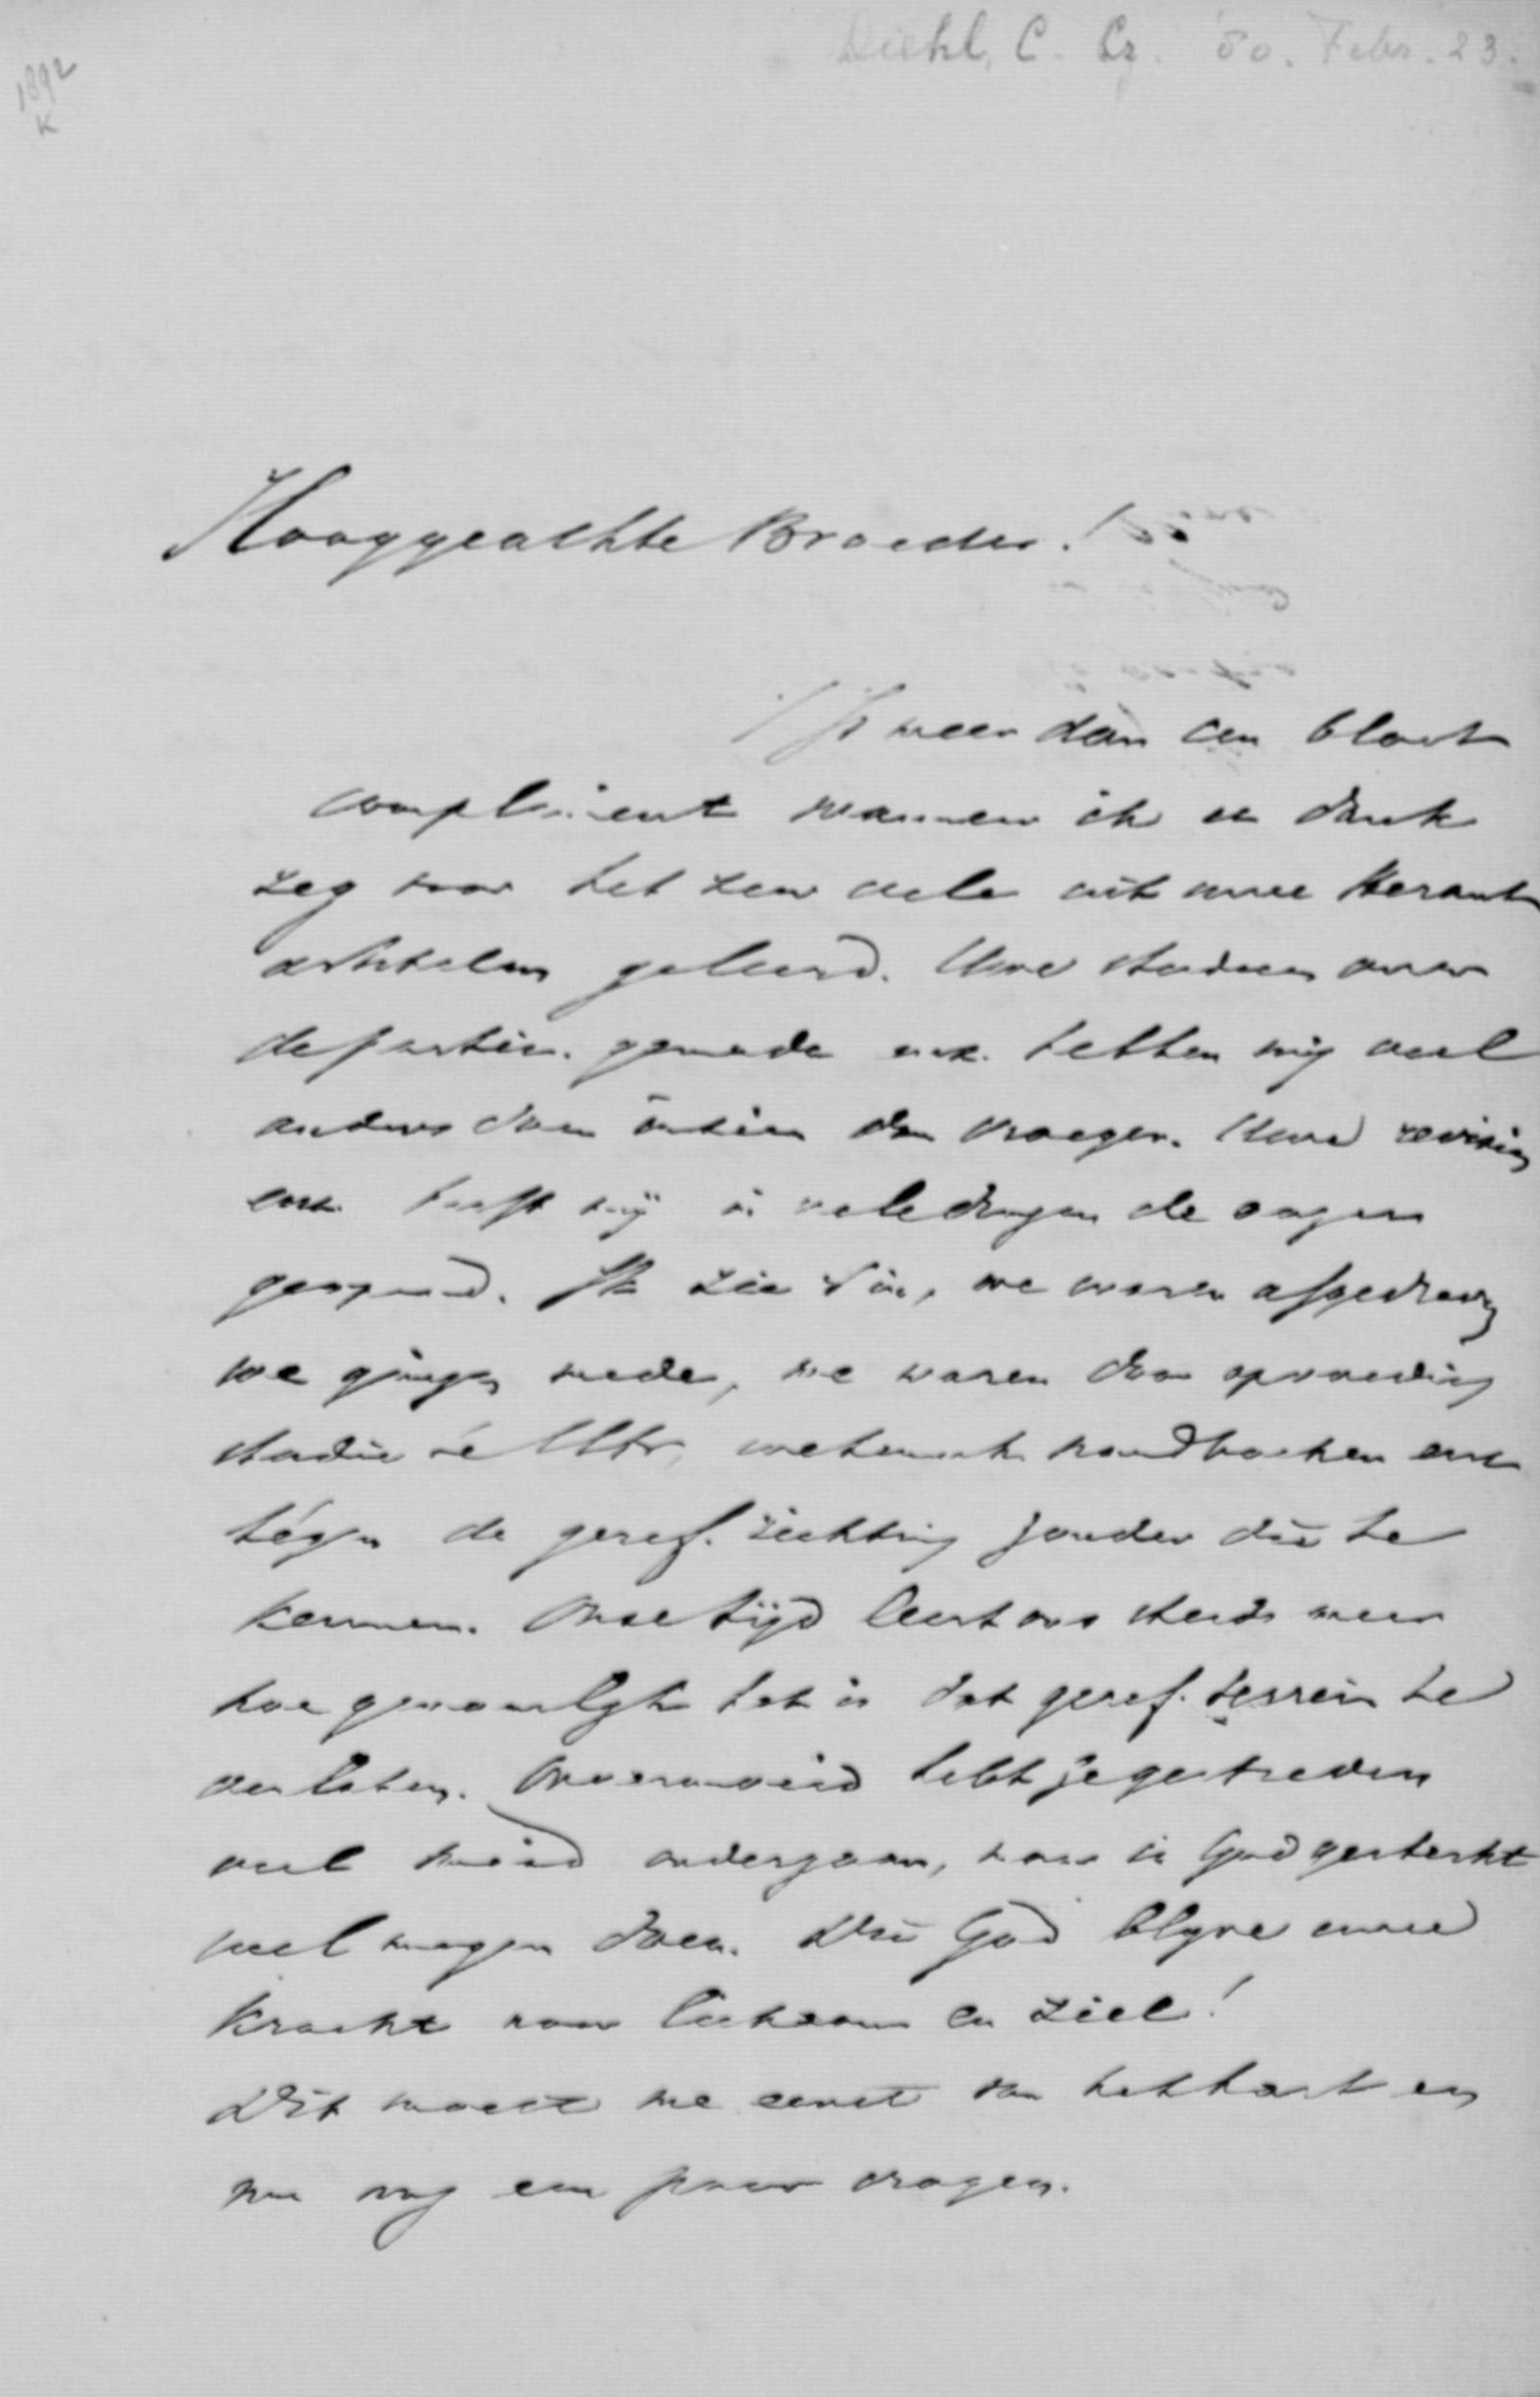 Diehl, C. Lz. '80. Febr. 23.
1892
K
Hooggeachte Broeder!
Is meer dan een bloot
compliment wanneer ik u dank
zeg voor het zeer vele uit uwe Heraut
artikelen geleerd. Uwe studien over
de partic. genade enz. hebben mij veel
anders doen inzien dan vroeger. Uwe revisie
enz. heeft mij in vele dingen de oogen
geopend. Ik zie 't in, we waren afgedreven
we gingen mede, we waren door opvoeding
studie te Utr, handboeken enz
tégen de geref. richting zonder die te
kennen. Onze tijd leert ons steeds meer
hoe gevaarlijk het is dat geref. terrein te
verlaten. Onvermoeid hebt je gestreden
veel smaad ondergaan, maar in God gesterkt
veel mogen doen. Die God blijve uwe
kracht naar lichaam en ziel!
Dit moest me eerst van het hart en
nu nog een paar vragen.